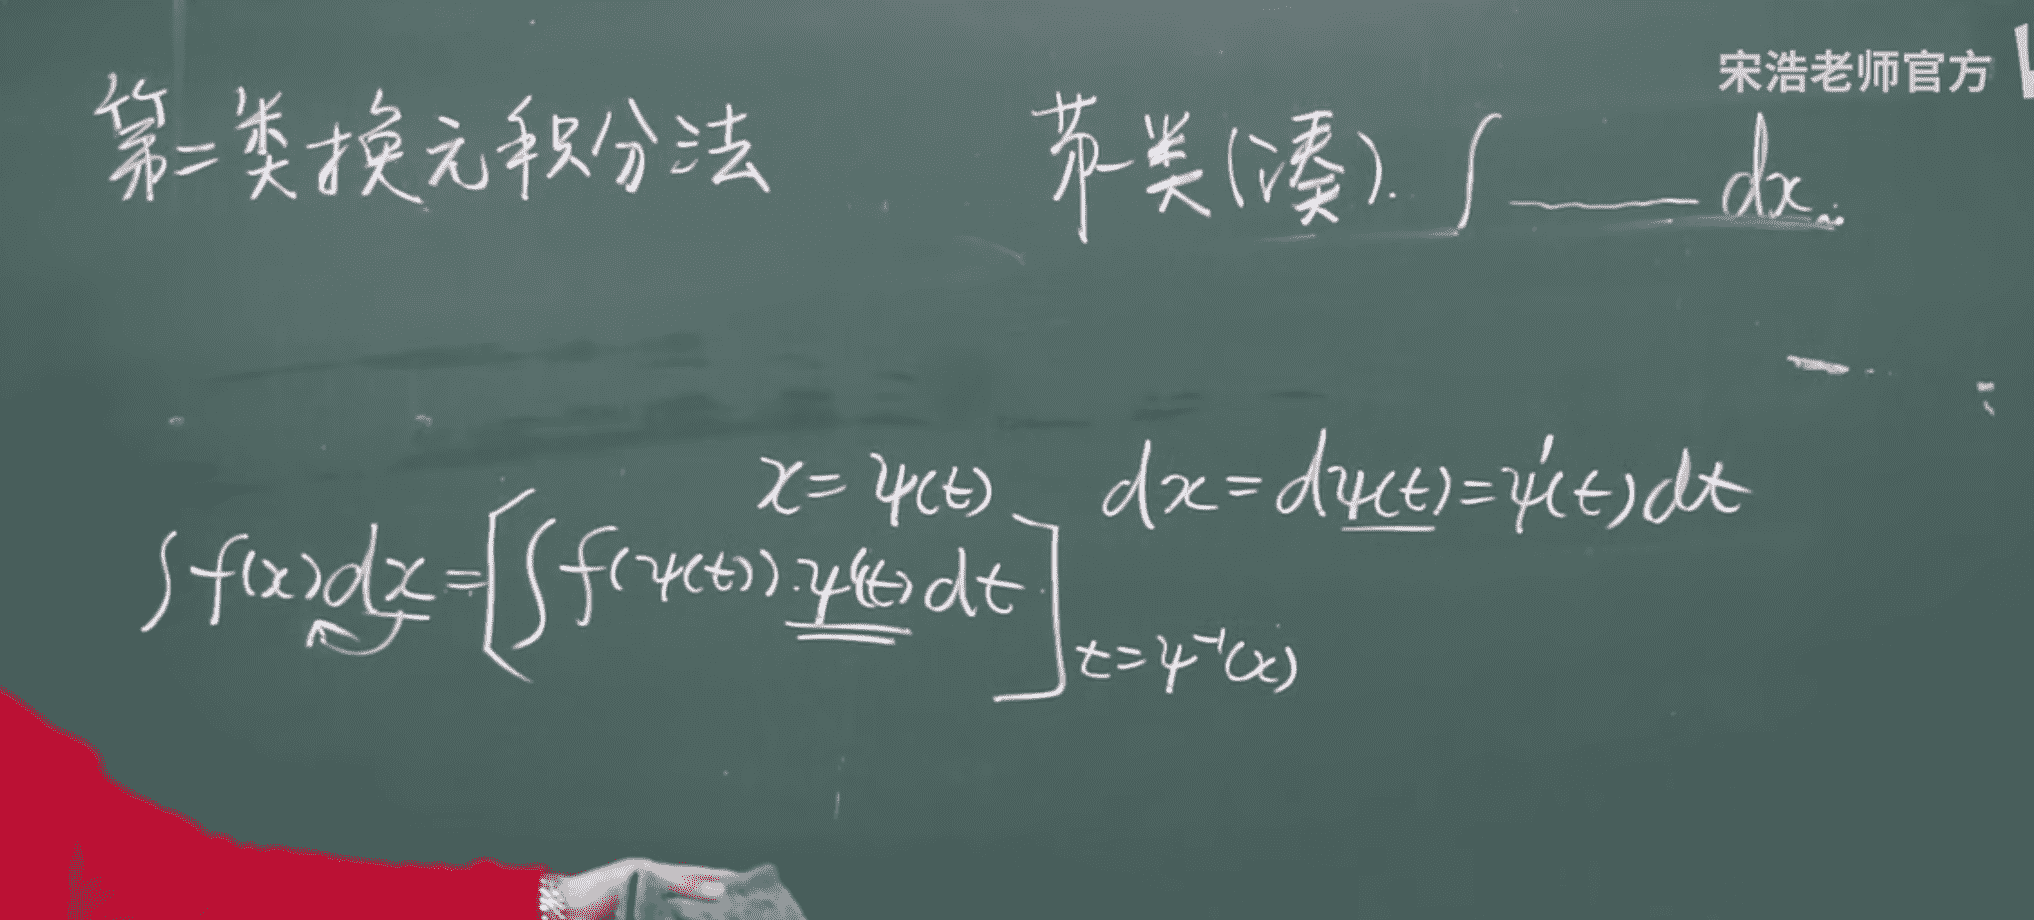 宋浩老师官方
第二类换元积分法 第一类(凑). ∫ ——— dx
x=ψ(t) dx=dψ(t)=ψ'(t)dt
∫f(x)dx=[∫f(ψ(t))·ψ'(t)dt]
t=ψ⁻¹(x)